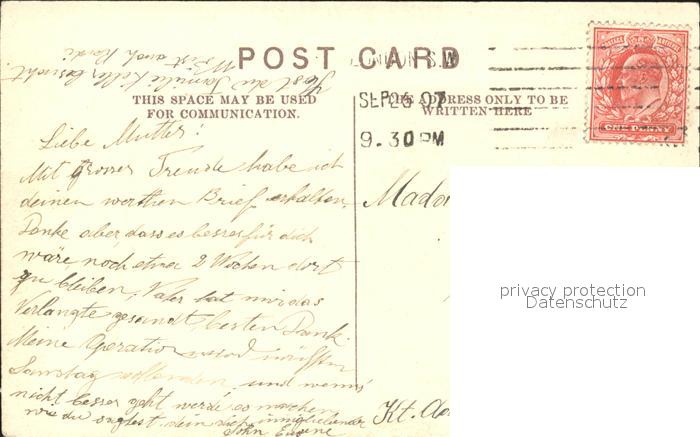 POST CARD
LONDON. S.W
SEP 26 07
9.30 PM
THIS SPACE MAY BE USED
FOR COMMUNICATION.
THE ADDRESS ONLY TO BE
WRITTEN HERE
ONE PENNY
Hast du Familie Keller besucht.
Ist auch
Liebe Mutter!
Mit Grosser Freude habe ich
deinen werthen Brief erhalten.
Danke aber, dass es besser für dich
wäre, noch etwa 2 Wochen dort
zu bleiben, Vater hat mir das
Verlangte gesandt besten Dank.
Meine Operation wird nächsten
Samstag vollenden und wenn's
nicht besser geht werde es machen
wie du sagtest. dein dich inniglieb­ender
John Eugene
Madon
Kt. Aa
privacy protection
Datenschutz